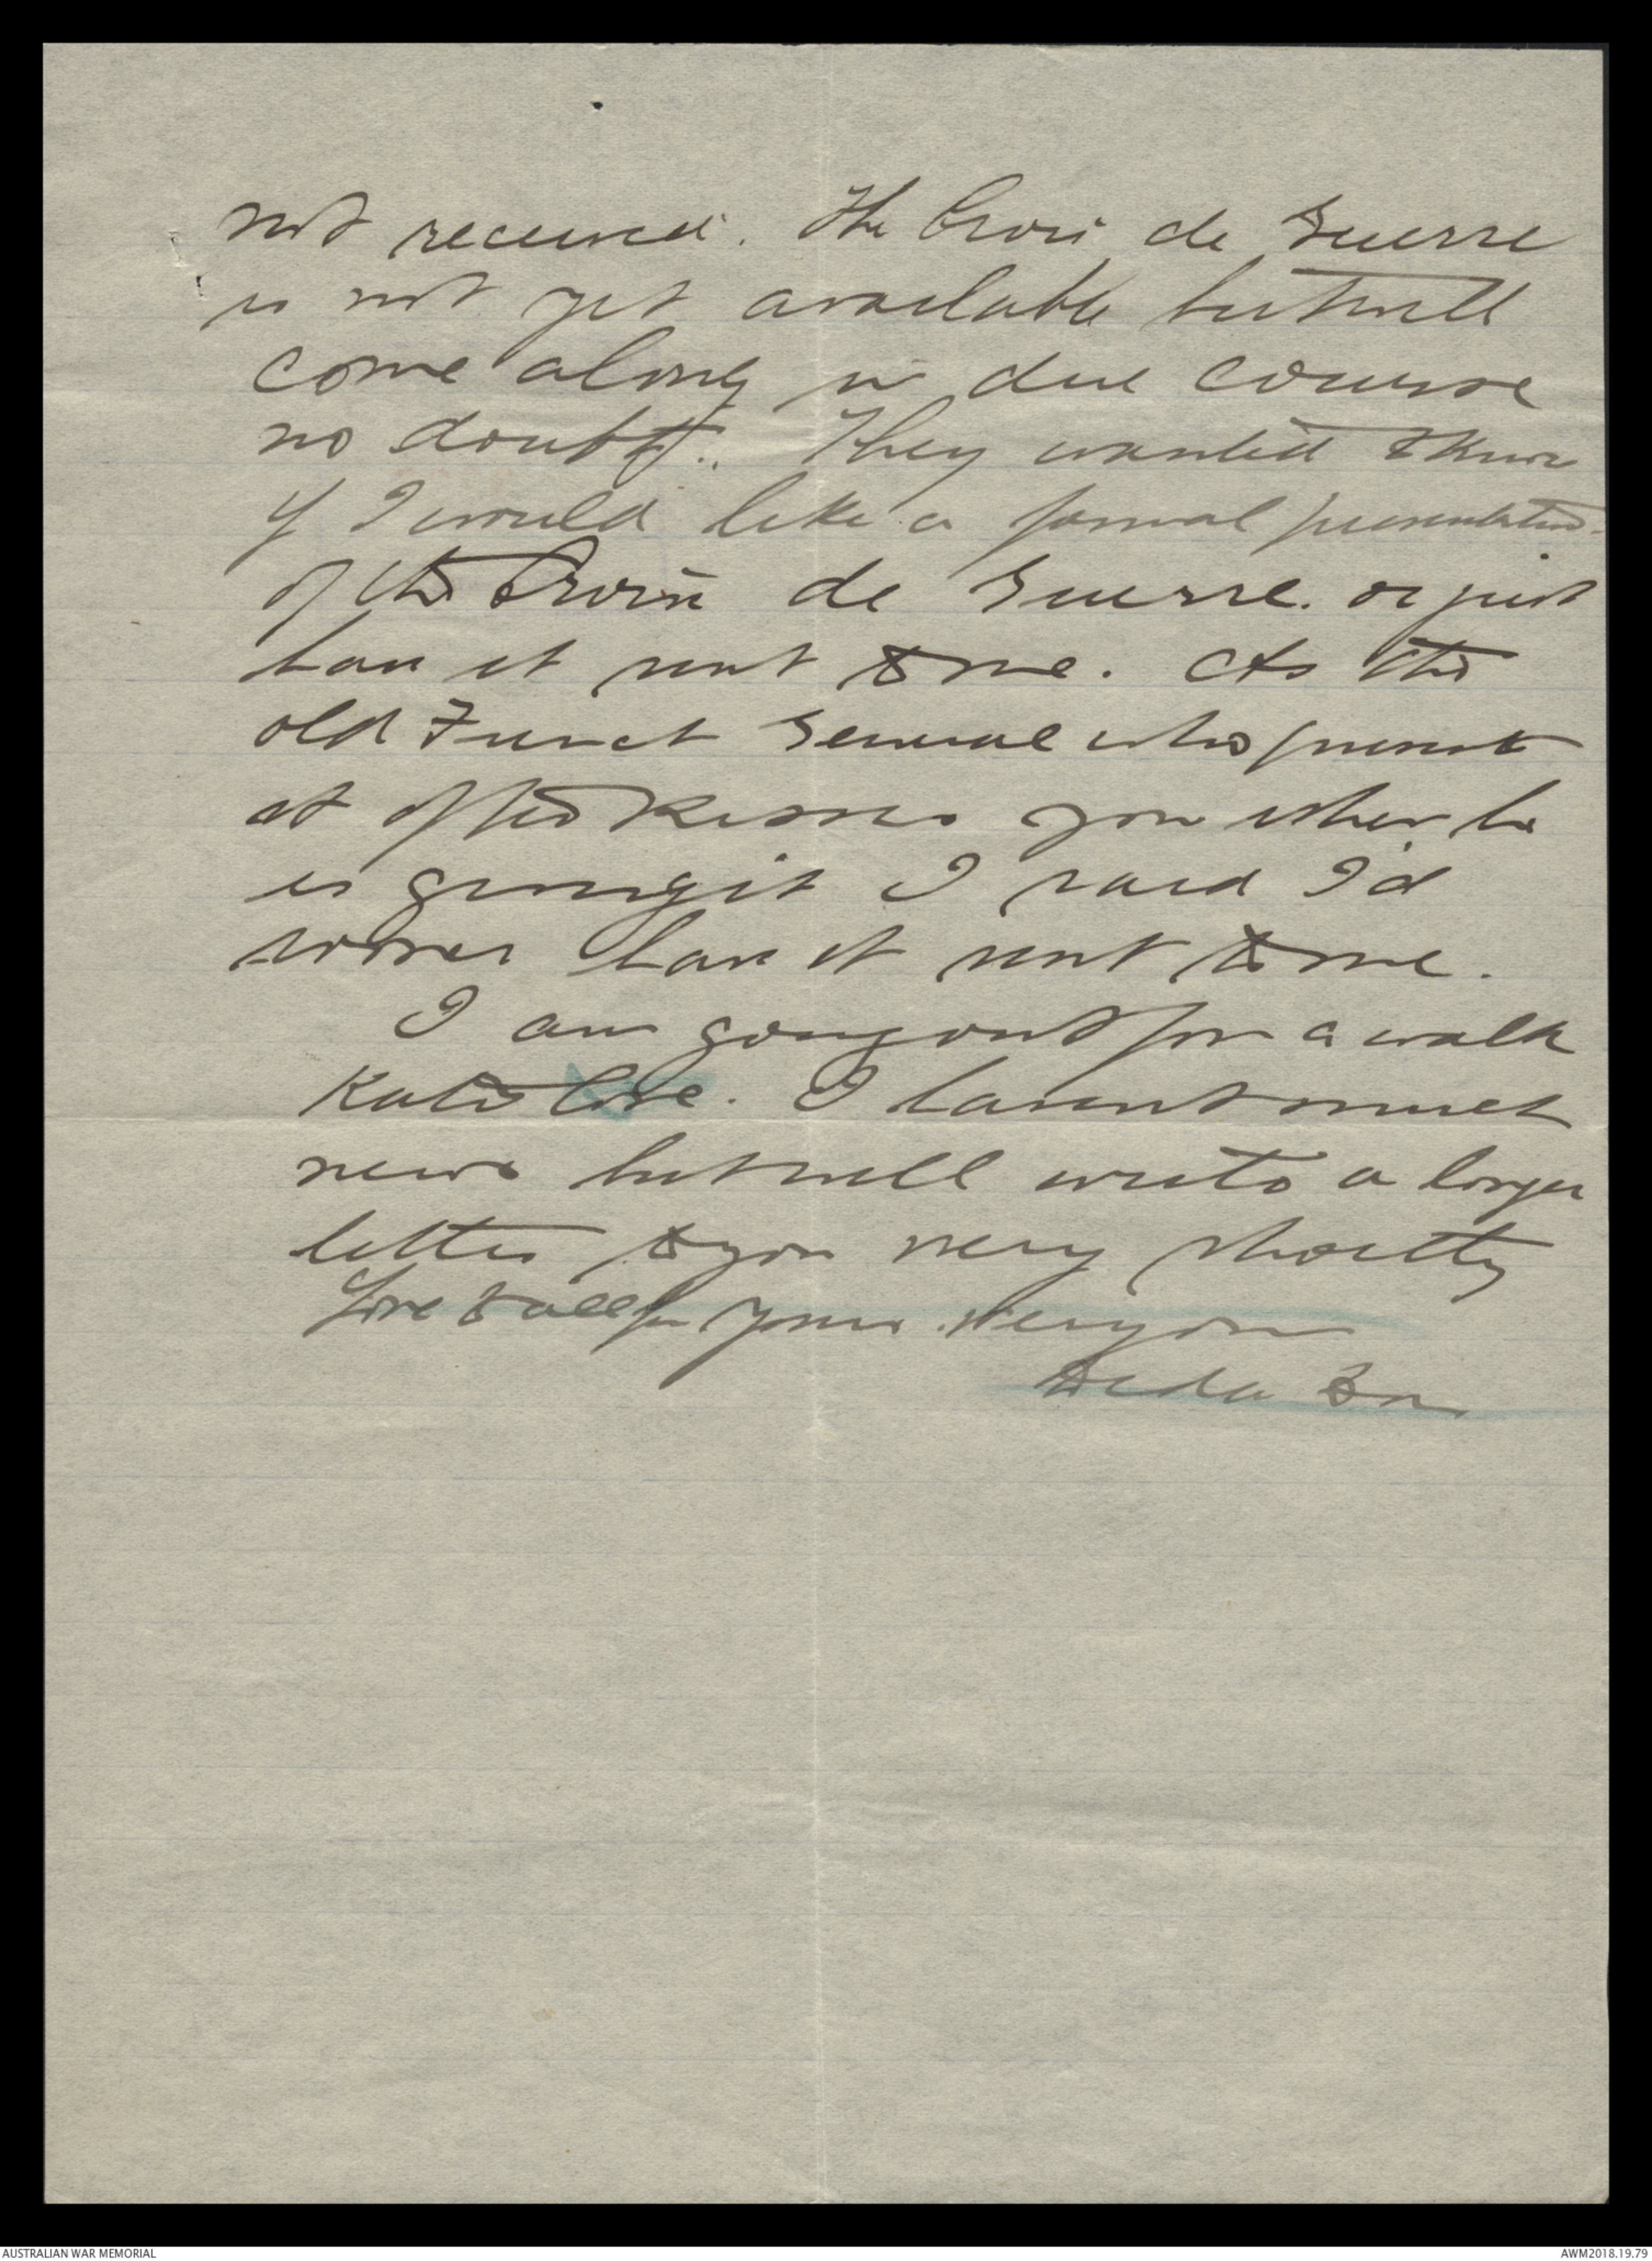 not received. The Croix de Guerre
is not yet available but will
come along in due course
no doubt. They wanted to know
if I would like a formal presentation
of the Croix de Guerre. or just
have it sent to me. As the
old French General who presents
it often kisses you when he
is giving it I said I'd
sooner have it sent to me.
I am going out for a walk
later. I havent much
news but will write a longer
letter to you very shortly
Love to all from your
AUSTRALIAN WAR MEMORIAL
AWM2018.19.79